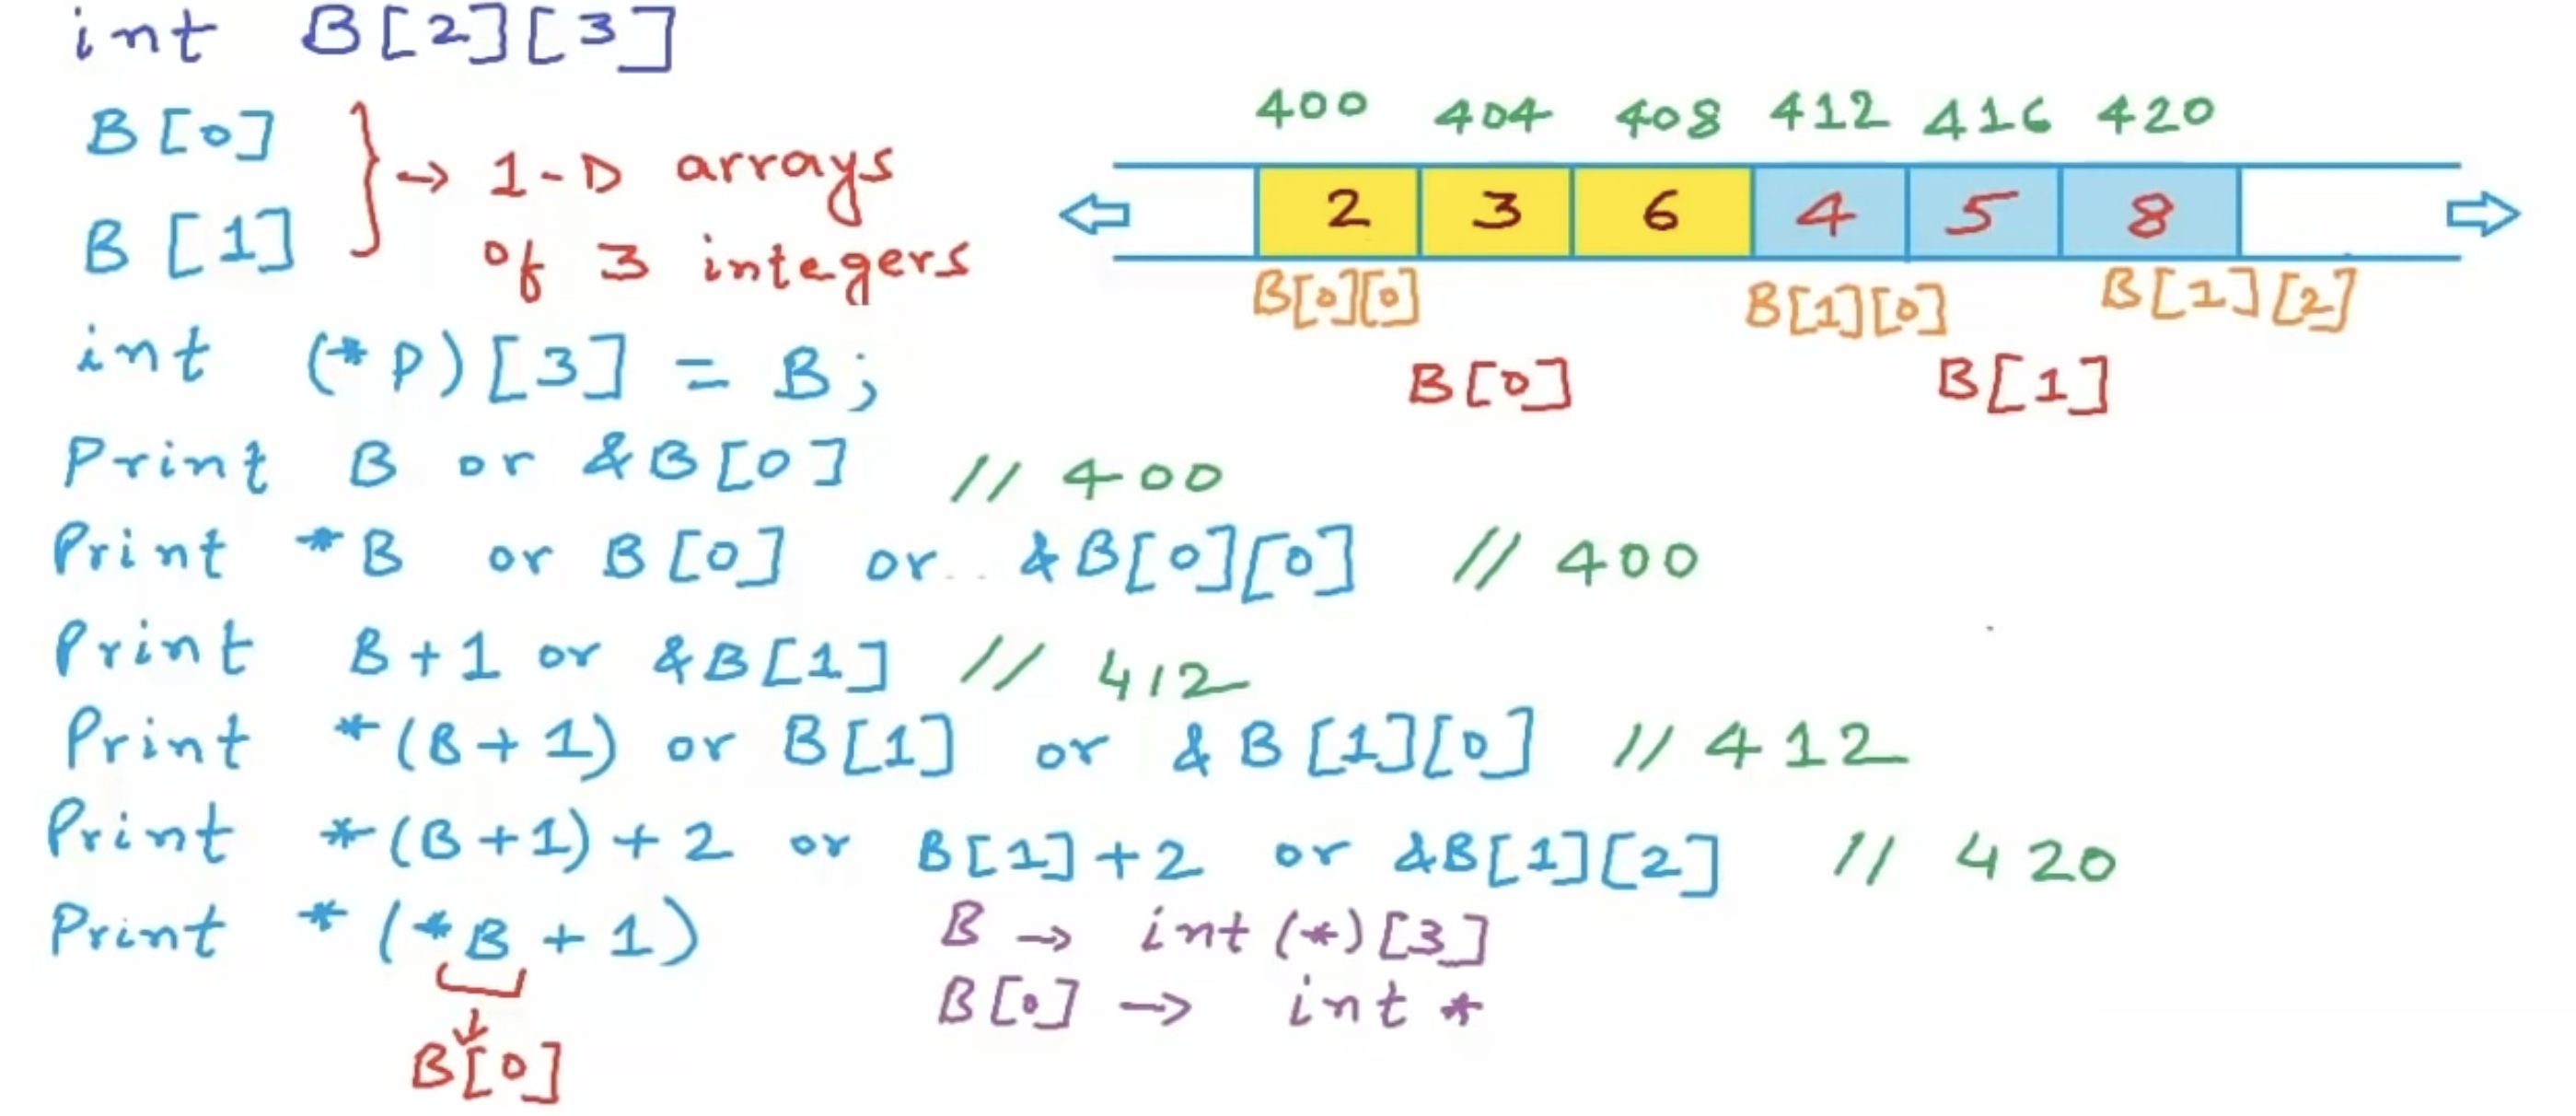 int B[2][3]
B[0]
B[1]
→ 1-D arrays
of 3 integers
400 404 408 412 416 420
2 3 6 4 5 8
B[0][0] B[1][0] B[1][2]
B[0] B[1]
int (*P)[3] = B;
Print B or &B[0] // 400
Print *B or B[0] or &B[0][0] // 400
Print B+1 or &B[1] // 412
Print *(B+1) or B[1] or &B[1][0] // 412
Print *(B+1)+2 or B[1]+2 or &B[1][2] // 420
Print *(*B+1)
B[0]
B → int(*)[3]
B[0] → int *